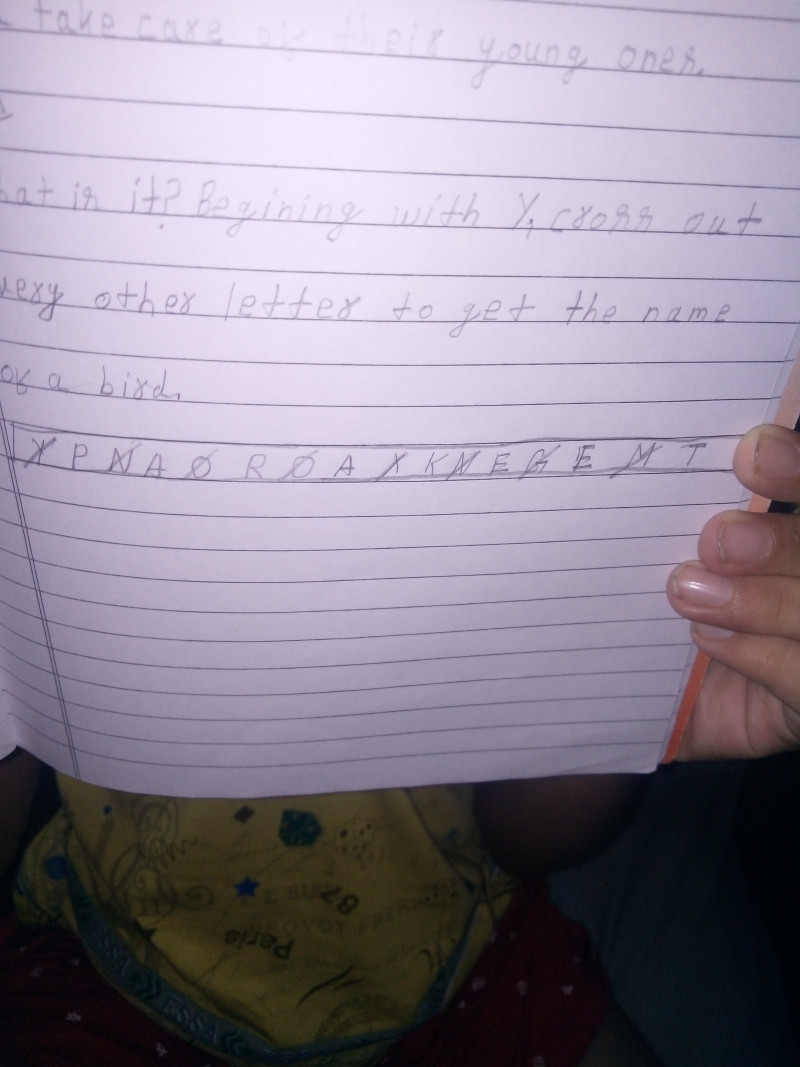 take care of their young ones.
hat is it? Begining with Y, cross out
very other letter to get the name
of a bird.
Y P N A O R O A X K N E G E M T
Paris
87
ESSA